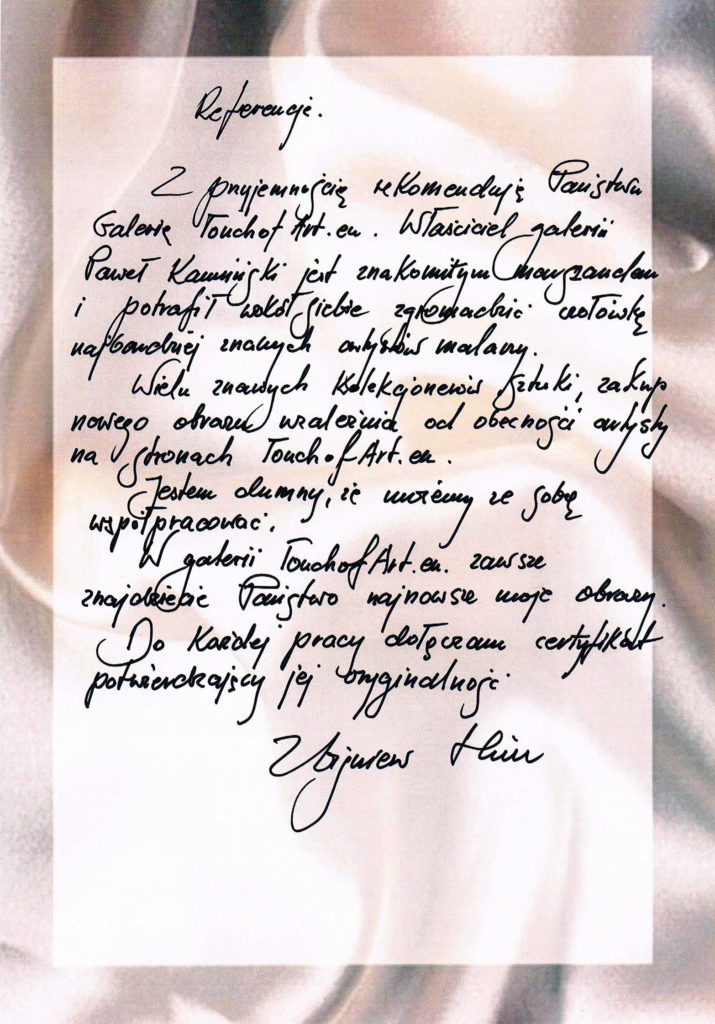 Referencje.
Z przyjemnością rekomenduję Państwu
Galerię TouchofArt.eu. Właściciel galerii
Paweł Kamiński jest znakomitym marszandem
i potrafił wokół siebie zgromadzić czołówkę
najbardziej znanych artystów malarzy.
Wielu znanych kolekcjonerów sztuki, zakup
nowego obrazu uzależnia od obecności artysty
na stronach TouchofArt.eu.
Jestem dumny, że możemy ze sobą
współpracować.
W galerii TouchofArt.eu. zawsze
znajdziecie Państwo najnowsze moje obrazy.
Do każdej pracy dołączam certyfikat
potwierdzający jej oryginalność
Zbigniew